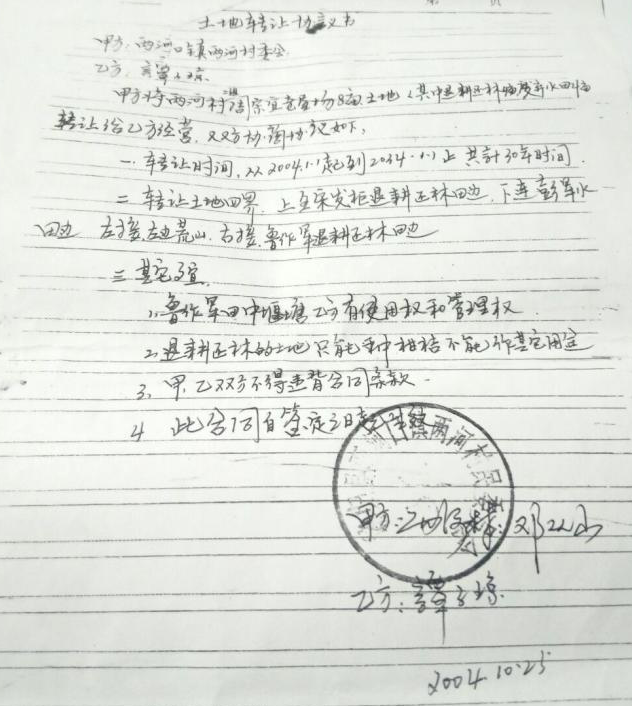 土地转让协议书
甲方：两河口镇两河村委会
乙方：谭
甲方将两河村 组 土地（其中退耕还林
转让给乙方经营，双方协商协议如下，
一.转让时间，从2004.1.1起到2034.1.1止共计30年时间
二转让土地四界，上至 退耕还林田边，下连彭 水
田边 左接左边荒山，右接鲁作军退耕还林田边
三其它事宜
1.鲁作军田中堰塘乙方有使用权和管理权
2.退耕还林的土地只能种 不能作其它用途
3.甲.乙双方不得违背合同条款.
4 此合同自签定之日起
两河村民委
甲方： 邓
乙方：谭
2004.10.25